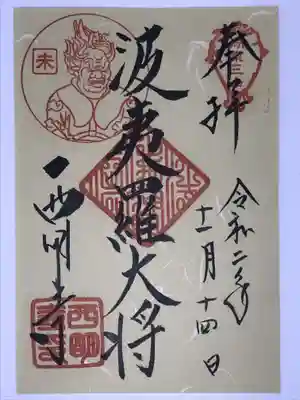 奉拝
令和二年
十一月十四日
波夷羅大将
西明寺
未
西明